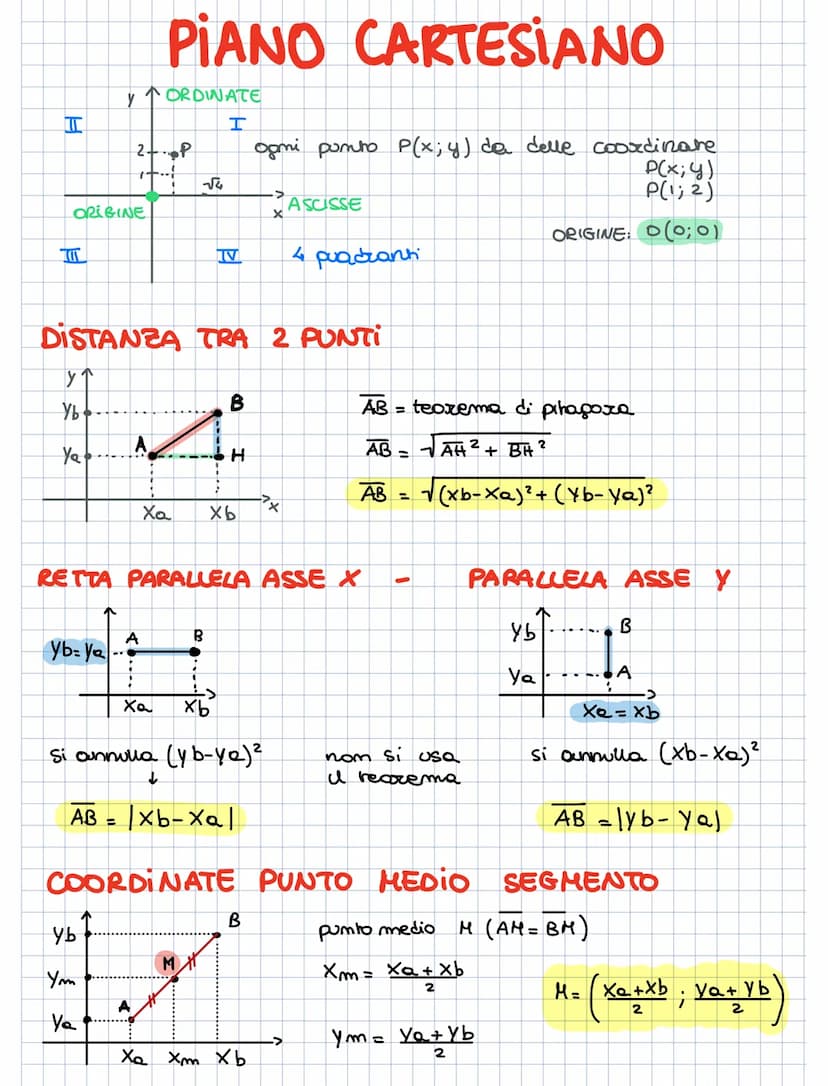 PIANO CARTESIANO
y ORDINATE
II I
2 P ogni punto P(x;y) da delle coordinate
P(x;y)
1 √4 P(1;2)
x ASCISSE
ORIGINE
ORIGINE: O(0;0)
III IV 4 quadranti
DISTANZA TRA 2 PUNTI
y
Yb B AB = teorema di pitagora
Ya A H AB = √AH² + BH²
AB = √(xb-xa)²+(Yb-Ya)²
Xa Xb x
RETTA PARALLELA ASSE X - PARALLELA ASSE Y
Yb=Ya A B
Xa Xb
Yb B
Ya A
Xa = Xb
si annulla (yb-ya)² non si usa si annulla (Xb-Xa)²
↓ il teorema
AB = |Xb-Xa| AB = |Yb-Ya|
COORDINATE PUNTO MEDIO SEGMENTO
Yb B punto medio M (AM=BM)
Ym M Xm = Xa+Xb/2
M = (Xa+Xb/2 ; Ya+Yb/2)
Ya A Ym = Ya+Yb/2
Xa Xm Xb